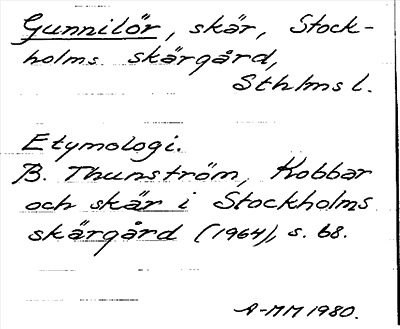 Gunnilör, skär, Stock-
holms skärgård,
Sthlms l.
Etymologi.
B. Thunström, Kobbar
och skär i Stockholms
skärgård (1964), s. 68.
A-MM 1980.